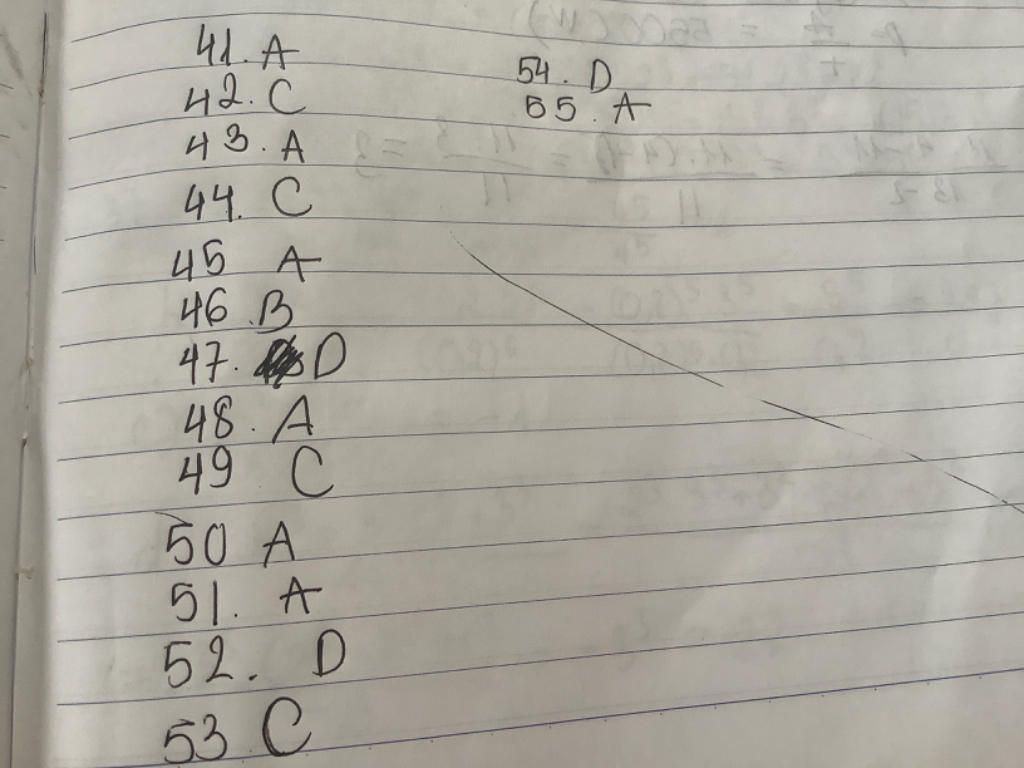 41. A
42. C
43. A
44. C
45 A
46. B
47. D
48. A
49 C
50 A
51. A
52. D
53 C
54. D
55. A